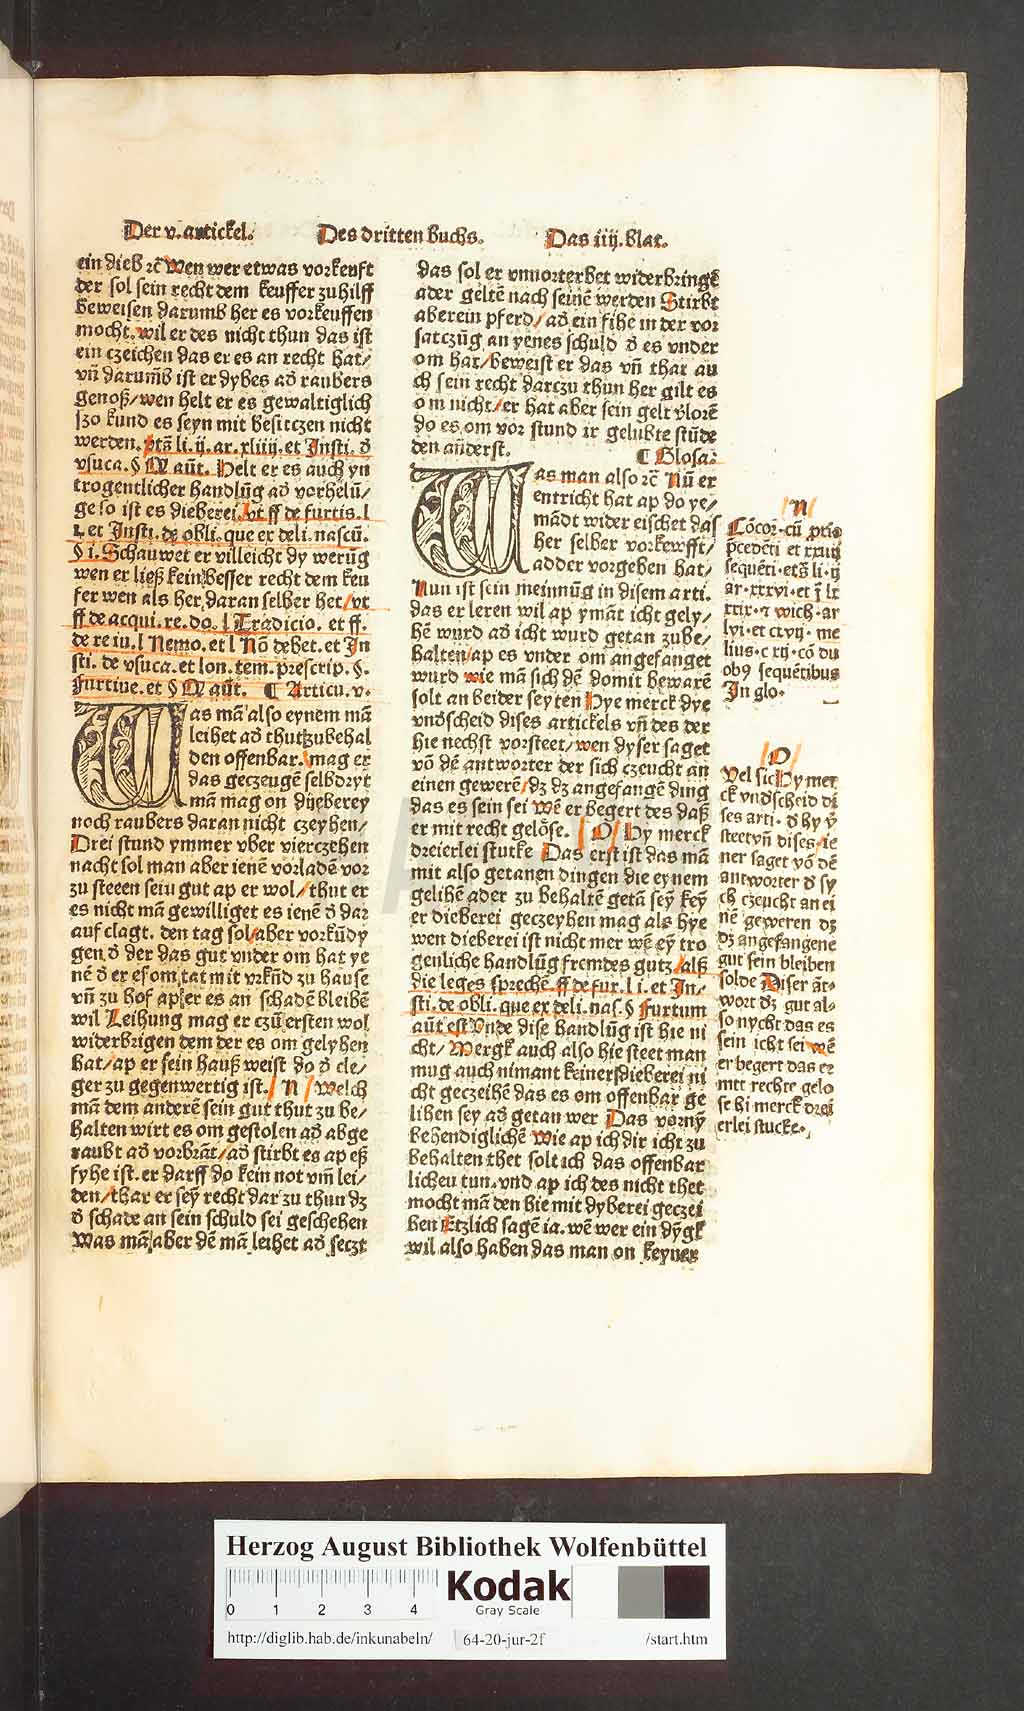 Der v. artickel. Des dritten buchs. Das iiij. blat.
ein dieb rc̄ Wen wer etwas vorkeuft
der sol sein recht dem keuffer zu hilff
beweisen darumb her es vorkeuffen
mocht. wil er des nicht thun das ist
ein czeichen das er es an recht hat/
vn̄ darum̄b ist er dybes ad̄ raubers
genoß/wen helt er es gewaltiglich
Jzo kund es seyn mit besitczen nicht
werden. pts̄ li. ij. ar. xliiij. et Insti. d̄
vsuca. § W aūt. Helt er es auch yn
trogentlicher handlūg ad̄ vorhelū/
ge so ist es dieberei. vt ff de furtis. l
i. et Insti. de obli. que ex deli. nascū.
§ i. Schauwet er villeicht dy werūg
wen er ließ kein besser recht dem keu
fer wen als her daran selber het/vt
ff de acqui. re. do. l Tradicio. et ff.
de re iu. l Nemo. et l Nō debet. et In
sti. de vsuca. et lon. tem. prescrip. §.
Furtiue. et § W aūt. ¶ Articu. v.
Was mā also eynem mā
leihet ad̄ thut zubehal
den offenbar. mag er
das geczeugē selbdryt
mā mag on dyeberey
noch raubers daran nicht czeyhen/
Drei stund ymmer vber vierczehen
nacht sol man aber ienē vorladē vor
zu steeen sein gut ap er wol/thut er
es nicht mā gewilliget es ienē d̄ dar
auf clagt. den tag sol/aber vorkūdy
gen d̄ der das gut vnder om hat ye
nē d̄ er es om tat mit vrkn̄d zu hause
vn̄ zu hof ap er es an schadē bleibē
wil Leihung mag er czū ersten wol
widerbrigen dem der es om gelyhen
hat/ap er sein hauß weist do d̄ cle/
ger zu gegenwertig ist. / N / Welch
mā dem anderē sein gut thut zu be/
halten wirt es om gestolen ad̄ abge
raubt ad̄ vorbrāt/ad̄ stirbt es ap eß
fyhe ist. er darff do kein not vm̄ lei/
den/thar er seȳ recht dar zu thun dz
d̄ schade an sein schuld sei geschehen
Was mā aber dē mā leihet ad̄ seczt
das sol er vnuorterbet widerbringē
ader geltē nach seinē werden Stirbt
aberein pferd/ad̄ ein fihe in der vor
satczūg an yenes schuld d̄ es vnder
om hat/beweist er das vn̄ thar au
ch sein recht darczu thun her gilt es
om nicht/er hat aber sein gelt vlorē
do es om vor stund ir gelubte stūde
den an̄derst. ¶ Glosa.
Was man also rc̄ Nū er
entricht hat ap do ye/
mādt wider eischet das
her selber vorkewfft/
adder vorgeben hat/
Nun ist sein meinnūg in disem arti.
das er leren wil ap ymāt icht gely/
hē wurd ad̄ icht wurd getan zube/
halten/ap es vnder om angefanget
wurd wie mā sich dē domit bewarē
solt an beider seyten Hye merck dye
vnd̄scheid dises artickels vn̄ des der
hie nechst vorsteet/wen dyser saget
vō dē antworter der sich czeucht an
einen gewerē/dz dz angefangē ding
das es sein sei Wē er begert des daß
er mit recht gelöse. / O / Hy merck
dreierlei stutke Das erst ist das mā
mit also getanen dingen die eynem
gelihē ader zu behaltē getā seȳ keȳ
er dieberei geczeyhen mag als hye
wen dieberei ist nicht mer wē eȳ tro
genliche handlūg fremdes gutz/alß
die leges sprechē. ff de fur. l i. et In/
sti. de obli. que ex deli. nas. § Furtum
aūt est Vnde dise handlūg ist hie ni
cht/Mergk auch also hie steet man
mug auch nimant keinersdieberei ni
cht geczeihē das es om offenbar ge
lihen sey ad̄ getan wer Das vornȳ
behendiglichē Wie ap ich dir icht zu
behalten thet solt ich das offenbar
licheu tun. vnd ap ich des nicht thet
mocht mā den hie mit dyberei geczei
hen Etzlich sagē ia. wē wer ein dȳgk
wil also haben das man on keyner
/ N /
Cōcor. cū ptis
pcedēti et xxiiij
sequēti. ets̄ li. ij
ar. xxxvi. et ī lx
xxix. z wich. ar
lvi. et cxvij. me
lius. c xij. cō du
ob9 sequētibus
In glo.
/ O /
Vel sic Hy mer
ck vnd̄scheid di
ses arti. d̄ hy v̄
steetyn̄ dises. ie
ner saget vō dē
antworter d̄ sy
ch czeucht an ei
nē geweren dz
dz angefangene
gut sein bleiben
solde Diser āt-
wort dz gut al-
so nycht das es
sein icht sei wē
er begert das er
mit rechte gelo
se hi merck drei
erlei stucke.
Herzog August Bibliothek Wolfenbüttel
0 1 2 3 4
Kodak
Gray Scale
http://diglib.hab.de/inkunabeln/ 64-20-jur-2f /start.htm